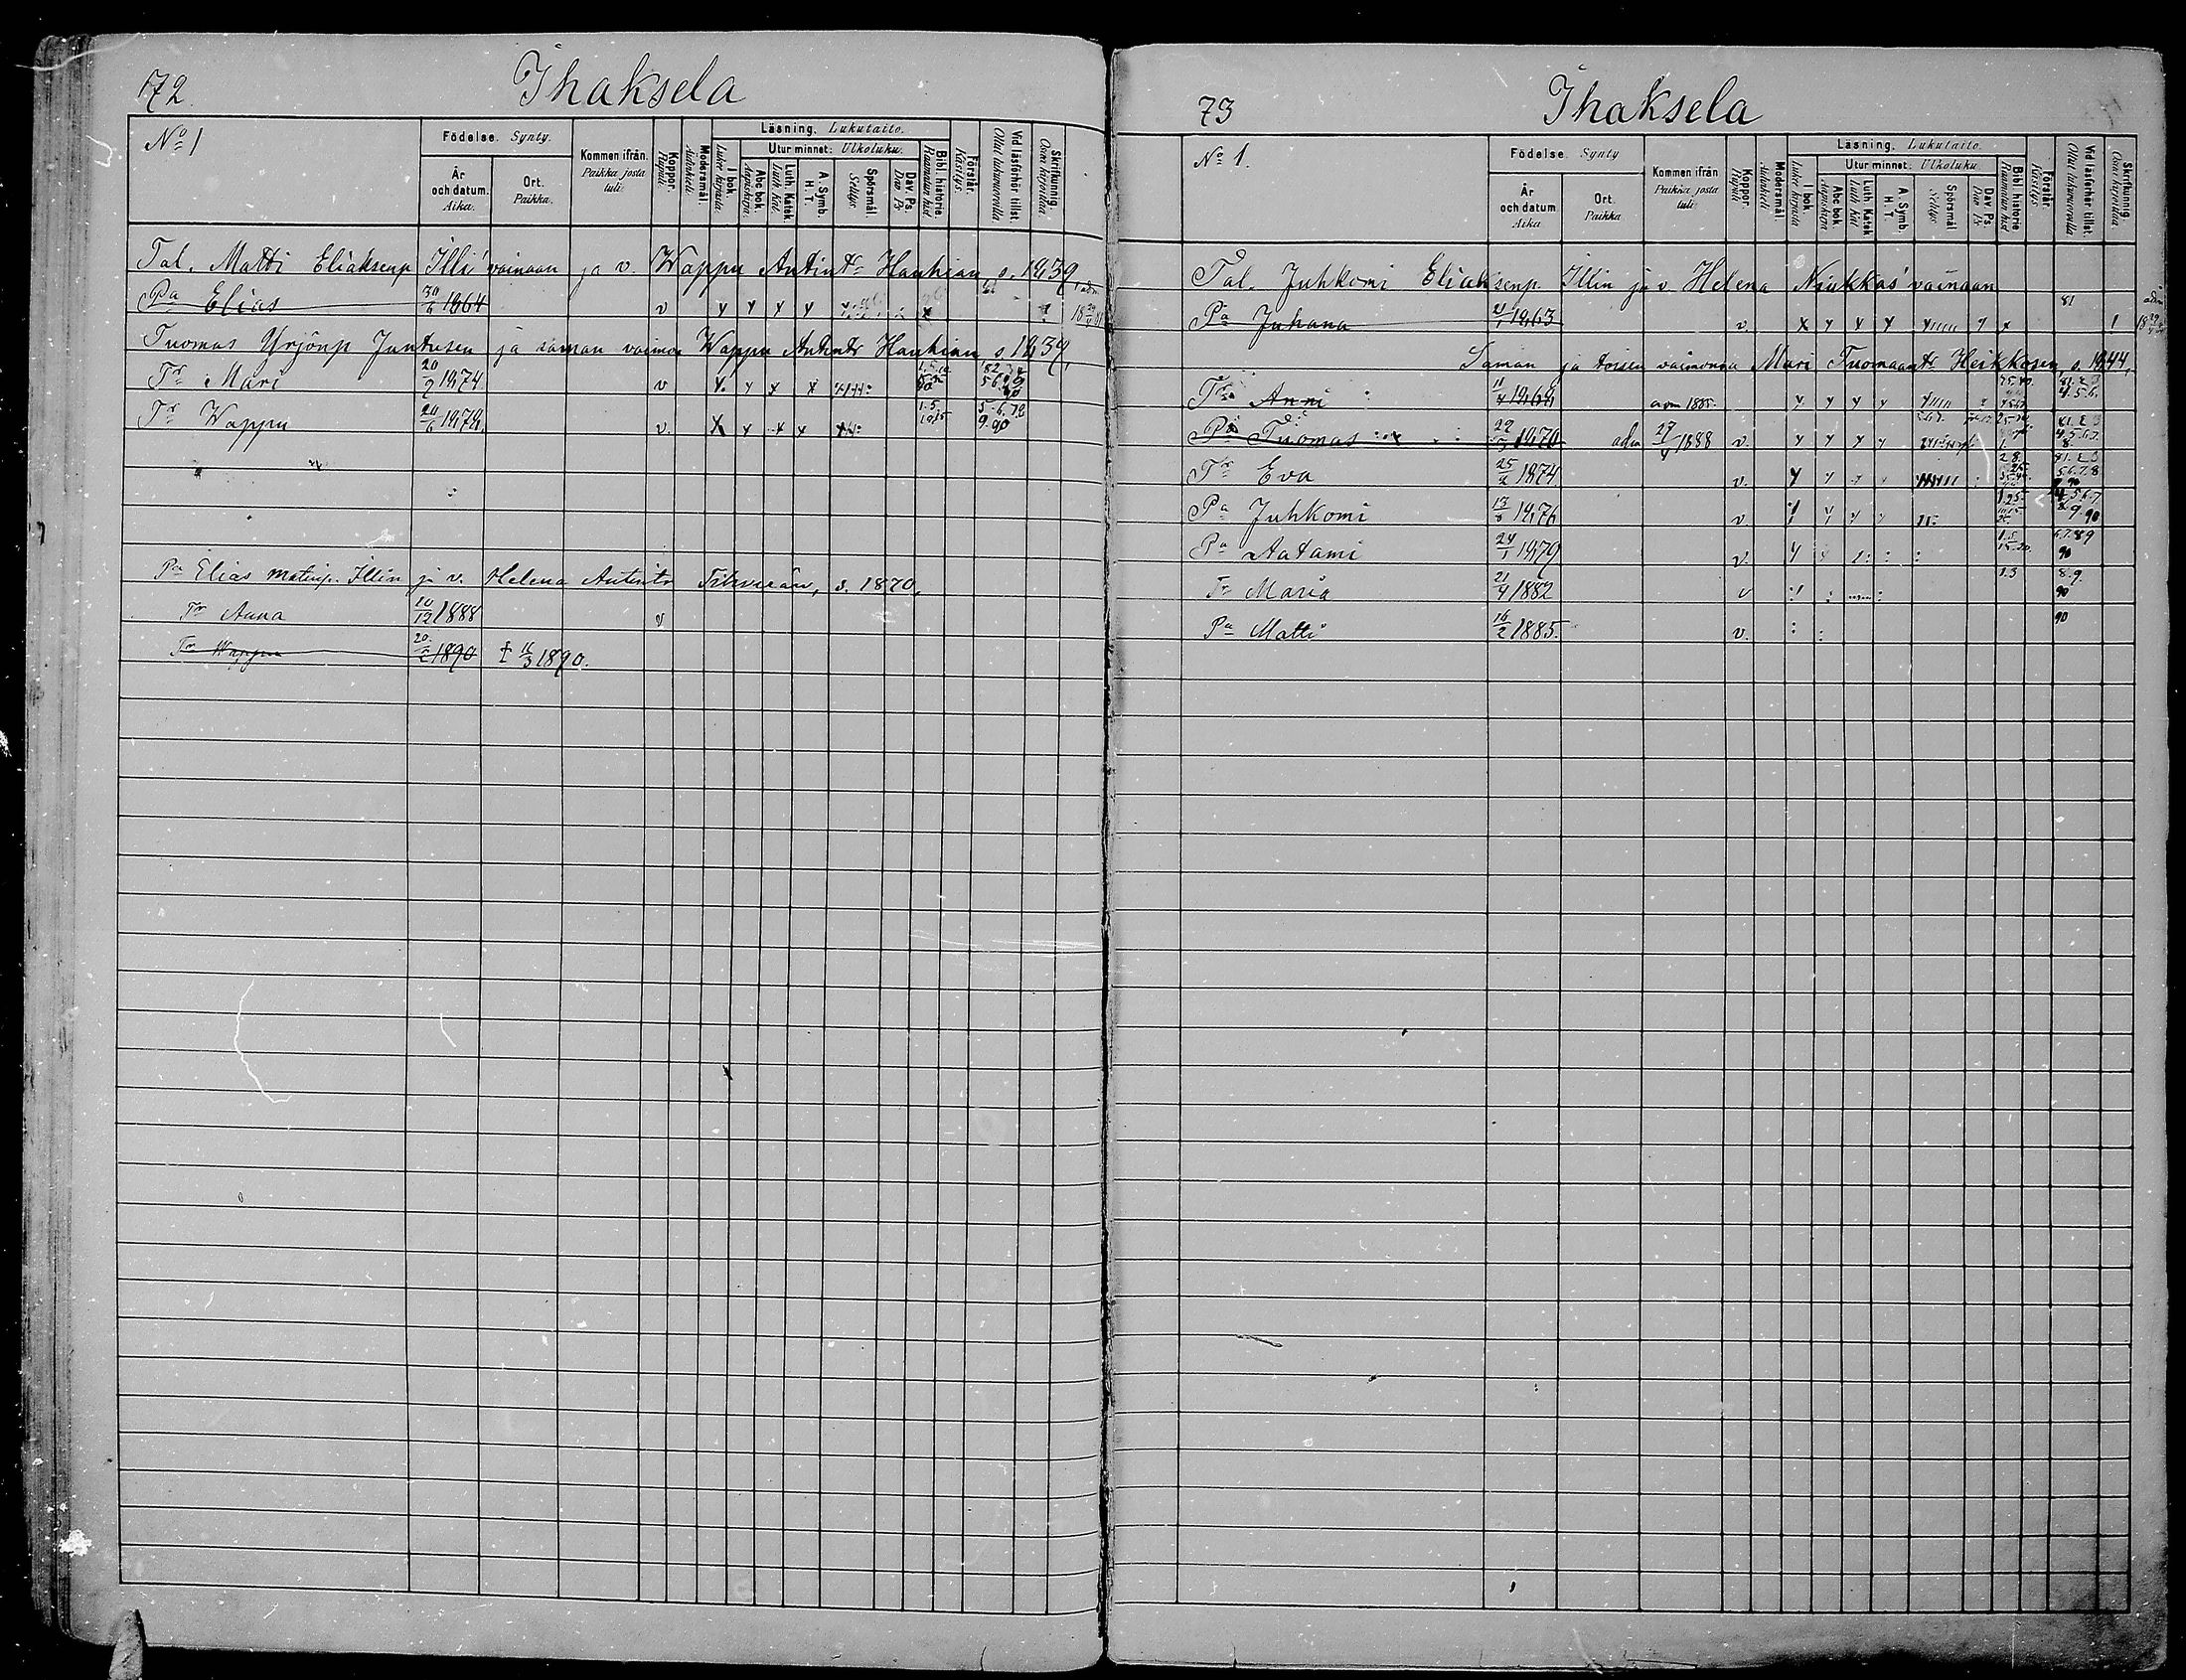 72.
Ihaksela
No 1
Födelse. Synty.
År och datum. Aika.
Ort. Paikka.
Kommen ifrån. Paikka josta tuli:
Koppor. Rupuli
Modersmål. Äidinkieli
Läsning. Lukutaito.
I bok. Lukee kirjasta
Utur minnet: Ulkoluku.
Abc bok. Aapiskirja.
Luth. Katsk. Luth Kat.
A. Symb. H. T.
Spörsmål. Selitys.
Dav. Ps. Dav Ps
Bibl. historie Raamatun hist.
Förstår. Käsitys.
Vid läsförhör tillst. Ollut lukuvuoroilla
Skrifkunnig. Osaa kirjoittaa
Tal. Matti Eliaksenp. Illi vainaan ja v. Wappu Antint. Hauhian, s. 1839,
Pa Elias 30/6 1864 v
Tuomas Yrjönp Juntusen ja saman vaimon Wappu Antint. Hauhian, s. 1839,
Tr Mari 20/2 1874 v
Tr Wappu 20/6 1879. v.
Pa Elias Matinp. Illin ja v. Helena Antintr Tihveräin, s. 1870.
Tr Anna 10/12 1888 v
Tr Wappu 20/2 1890 † 16/3 1890.
73
Ihaksela
No 1.
Födelse. Synty
År och datum Aika
Ort. Paikka
Kommen ifrån Paikka josta tuli
Koppor. Rupuli
Modersmål. Äidinkieli
Läsning. Lukutaito.
I bok. Lukee kirjasta
Utur minnet: Ulkoluku
Abc bok. Aapiskirja
Luth. Katsk. Luth Kat
A. Symb. H. T.
Spörsmål Selitys
Dav. Ps. Dav Ps
Bibl. historie Raamatun hist
Förstår. Käsitys.
Vid läsförhör tillst. Ollut lukuvuoroilla.
Skrifkunnig. Osaa kirjoittaa
Tal. Juhkomi Eliaksenp. Illin ja v. Helena Niukkas vainaan
Pa Juhana 21/1 1863 v. 81 1
Saman ja toisen vaimonsa Mari Tuomaantr Heikkosen, s. 1844,
Tr Anni 11/4 1868 adm 1885. 81.2.3 4.5.6.
Pa Tuomas 1870 adm 27/4 1888 v. 81.2.3 4.5.6.7. 8.
Tr Eva 25/2 1874 v. 81.2.3 5.6.7.8 9.90
Pa Juhkomi 13/8 1876 v. 4.5.6.7 8.9.90
Pa Aatami 24/1 1879 v. 6.7.89 90
Tr Maria 21/4 1882 v 1.3 8.9. 90
Pa Matti 16/2 1885. v. 90